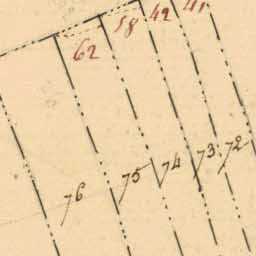 62 58 42 41
76 75 74 73 72